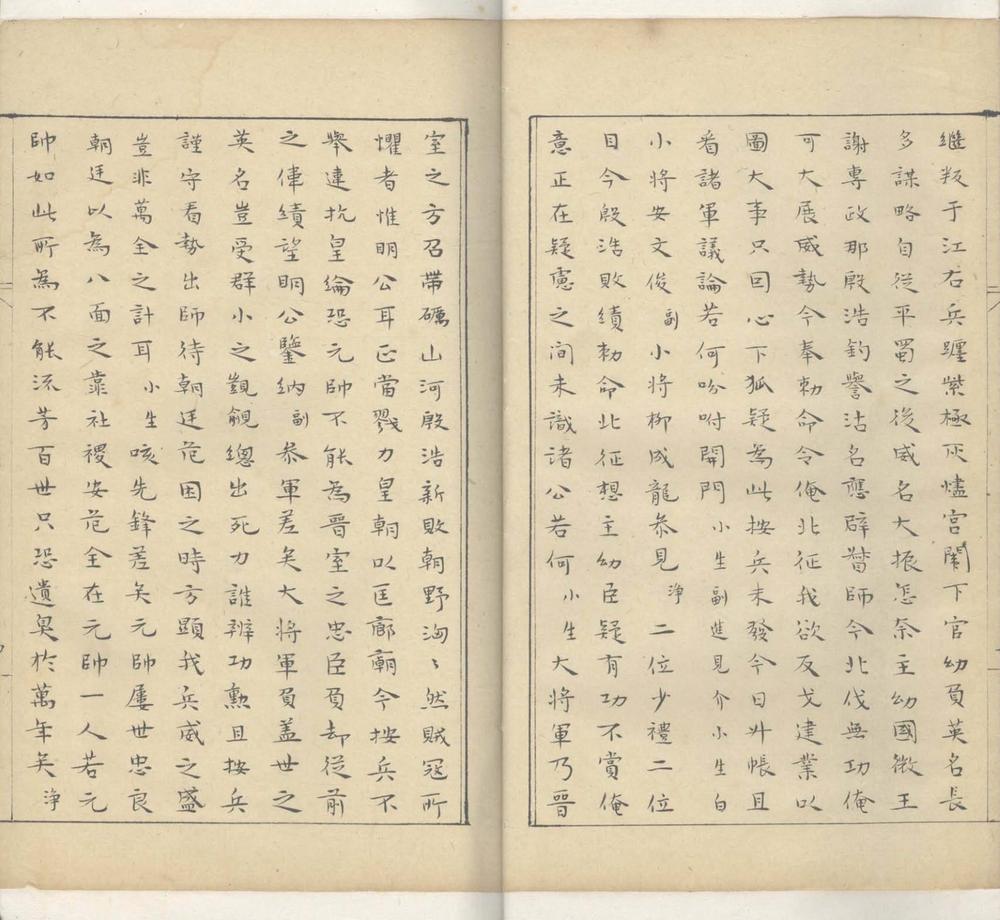 継叛于江右兵躔紫極灰燼宫闕下官幼負英名長
多謀略自從平蜀之後威名大振怎奈主幼國微王
謝專政那殷浩釣譽沽名應辟督師今北伐無功俺
可大展威勢今奉勅命令俺北征我欲反戈建業以
圖大事只因心下狐疑為此按兵未發今日升帳且
看諸軍議論若何吩咐開門小生副進見介小生白
小將安文俊副小將柳成龍叅見净二位少禮二位
目今殷浩敗績勅命北征想主幼臣疑有功不賞俺
意正在疑慮之间未識諸公若何小生大将軍乃晋
室之方召帶礪山河殷浩新敗朝野洶〻然賊寇所
懼者惟明公耳正當戮力皇朝以匡廊廟今按兵不
舉違抗皇綸恐元帥不能為晋室之忠臣負却從前
之偉績望明公鑒納副叅軍差矣大将軍負盖世之
英名豈受群小之覬覦總出死力誰辨功勲且按兵
謹守看勢出師待朝廷危困之時方顯我兵威之盛
豈非萬全之計耳小生咳先鋒差矣元帥屢世忠良
朝廷以為八面之靠社稷安危全在元帥一人若元
帥如此所為不能流芳百世只恐遺臭於萬年矣净